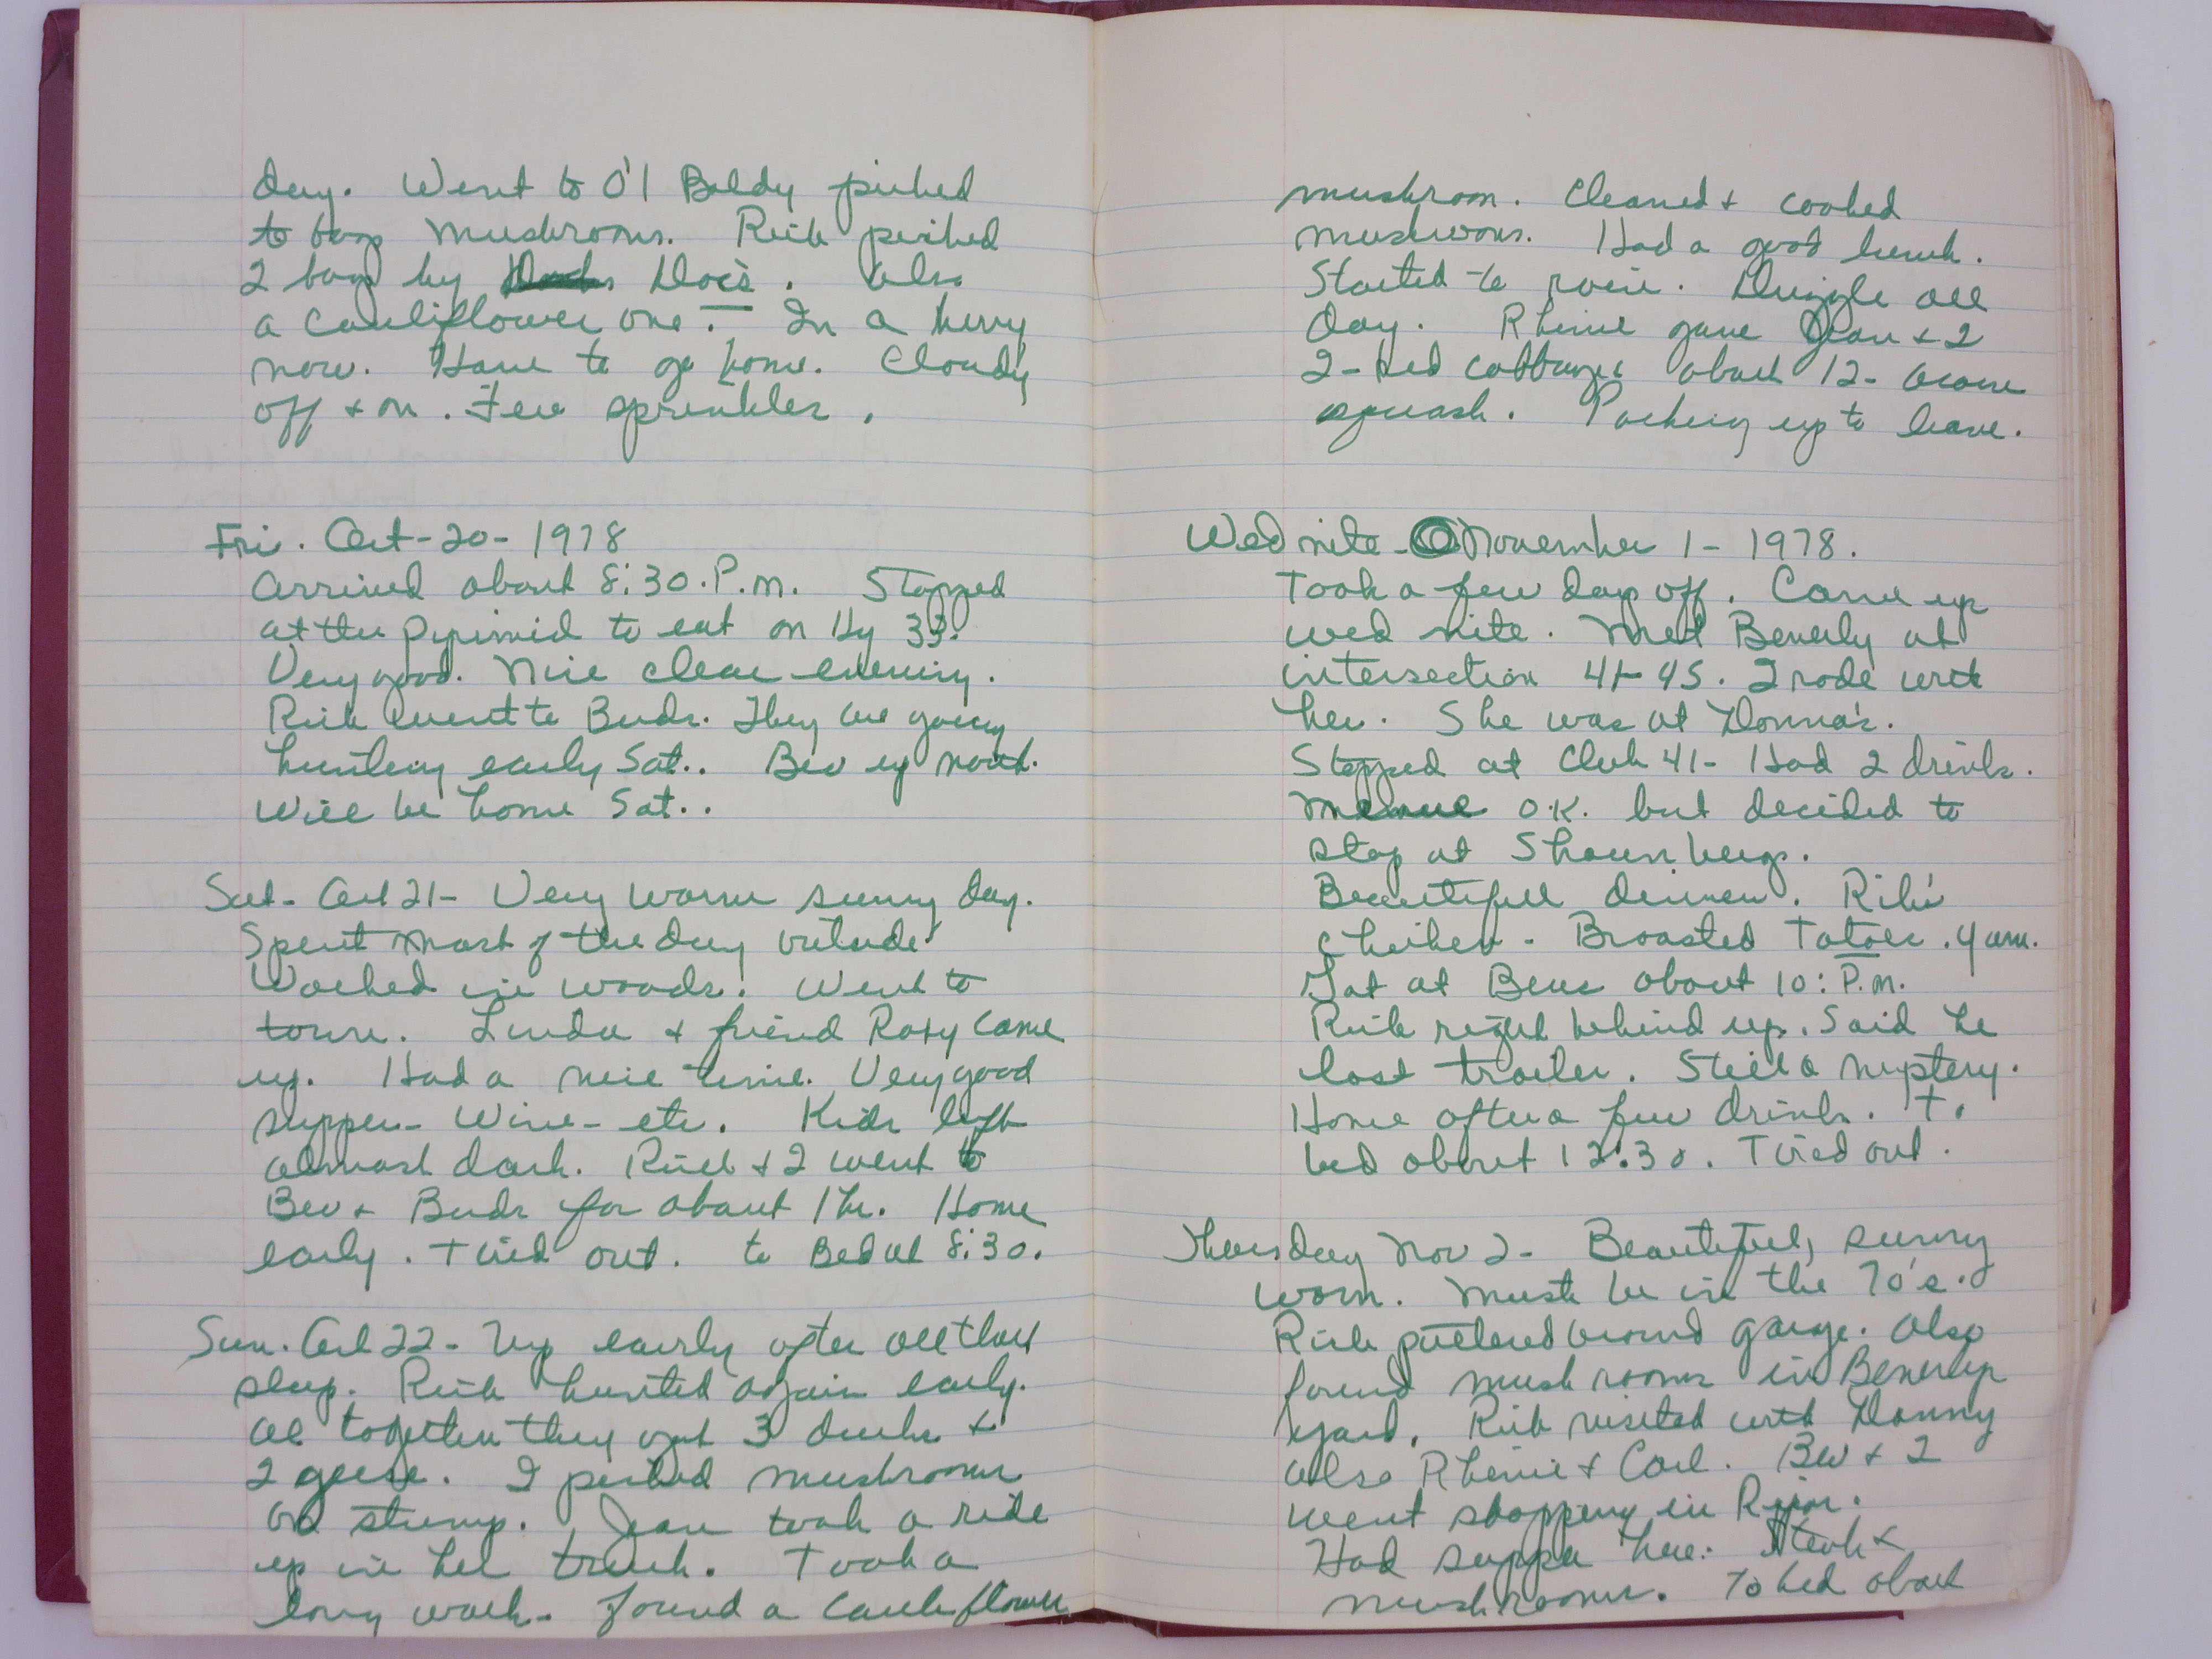 day. Went to O'l Baldy picked
to bags mushrooms. Rich picked
2 bags by Doc's. Also
a cauliflower one. In a hurry
now. Have to go home. Cloudy
off + on. Few sprinkles.
Fri. Oct-20-1978
Arrived about 8:30.P.M. Stopped
at the Pyrimid to eat on Hy 33.
Very good. Nice clear evening.
Rich went to Buds. They are going
hunting early Sat.. Bev up north.
Will be home Sat..
Sat- Oct 21- Very warm sunny day.
Spent most of the day outside.
Worked in woods. Went to
town. Linda + friend Roxy came
up. Had a nice time. Very good
supper- Wine- etc. Kids left
almost dark. Rich + I went to
Bev + Buds for about 1 hr. Home
early. Tired out. to Bed at 8:30.
Sun. Oct 22- Up early after all that
sleep. Rich hunted again early.
All together they got 3 ducks +
2 geese. I picked mushrooms
on stump. Jean took a ride
up in her truck. Took a
long walk. Found a cauliflower
mushroom. Cleaned + cooked
mushrooms. Had a good lunch.
Started to rain. Drizzle all
day. Rheine gave Jean + I
2-Red cabbages about 12- acorn
squash. Packing up to leave.
Wed nite - November 1-1978.
Took a few days off. Came up
wed nite. Met Beverly at
intersection 41-45. I rode with
her. She was at Donna's.
Stopped at Club 41- Had 2 drinks.
Menue O.K. but decided to
stop at
Beautifull dinner. Ribs
chicken - Broasted Tatoes. Yum.
Got at Bevs about 10: P.M.
Rich right behind up. Said he
lost trailer. Still a mystery.
Home after a few drinks. To
bed about 12:30. Tired out.
Thursday Nov 2- Beautiful, sunny
warm. Must be in the 70's.
Rich puttered around garage. Also
found mushrooms in Beverlys
yard. Rich visited with Danny
also Rheine + Carl. Bev + I
went shopping in Ripon.
Had supper here. Steak +
mushrooms. To bed about